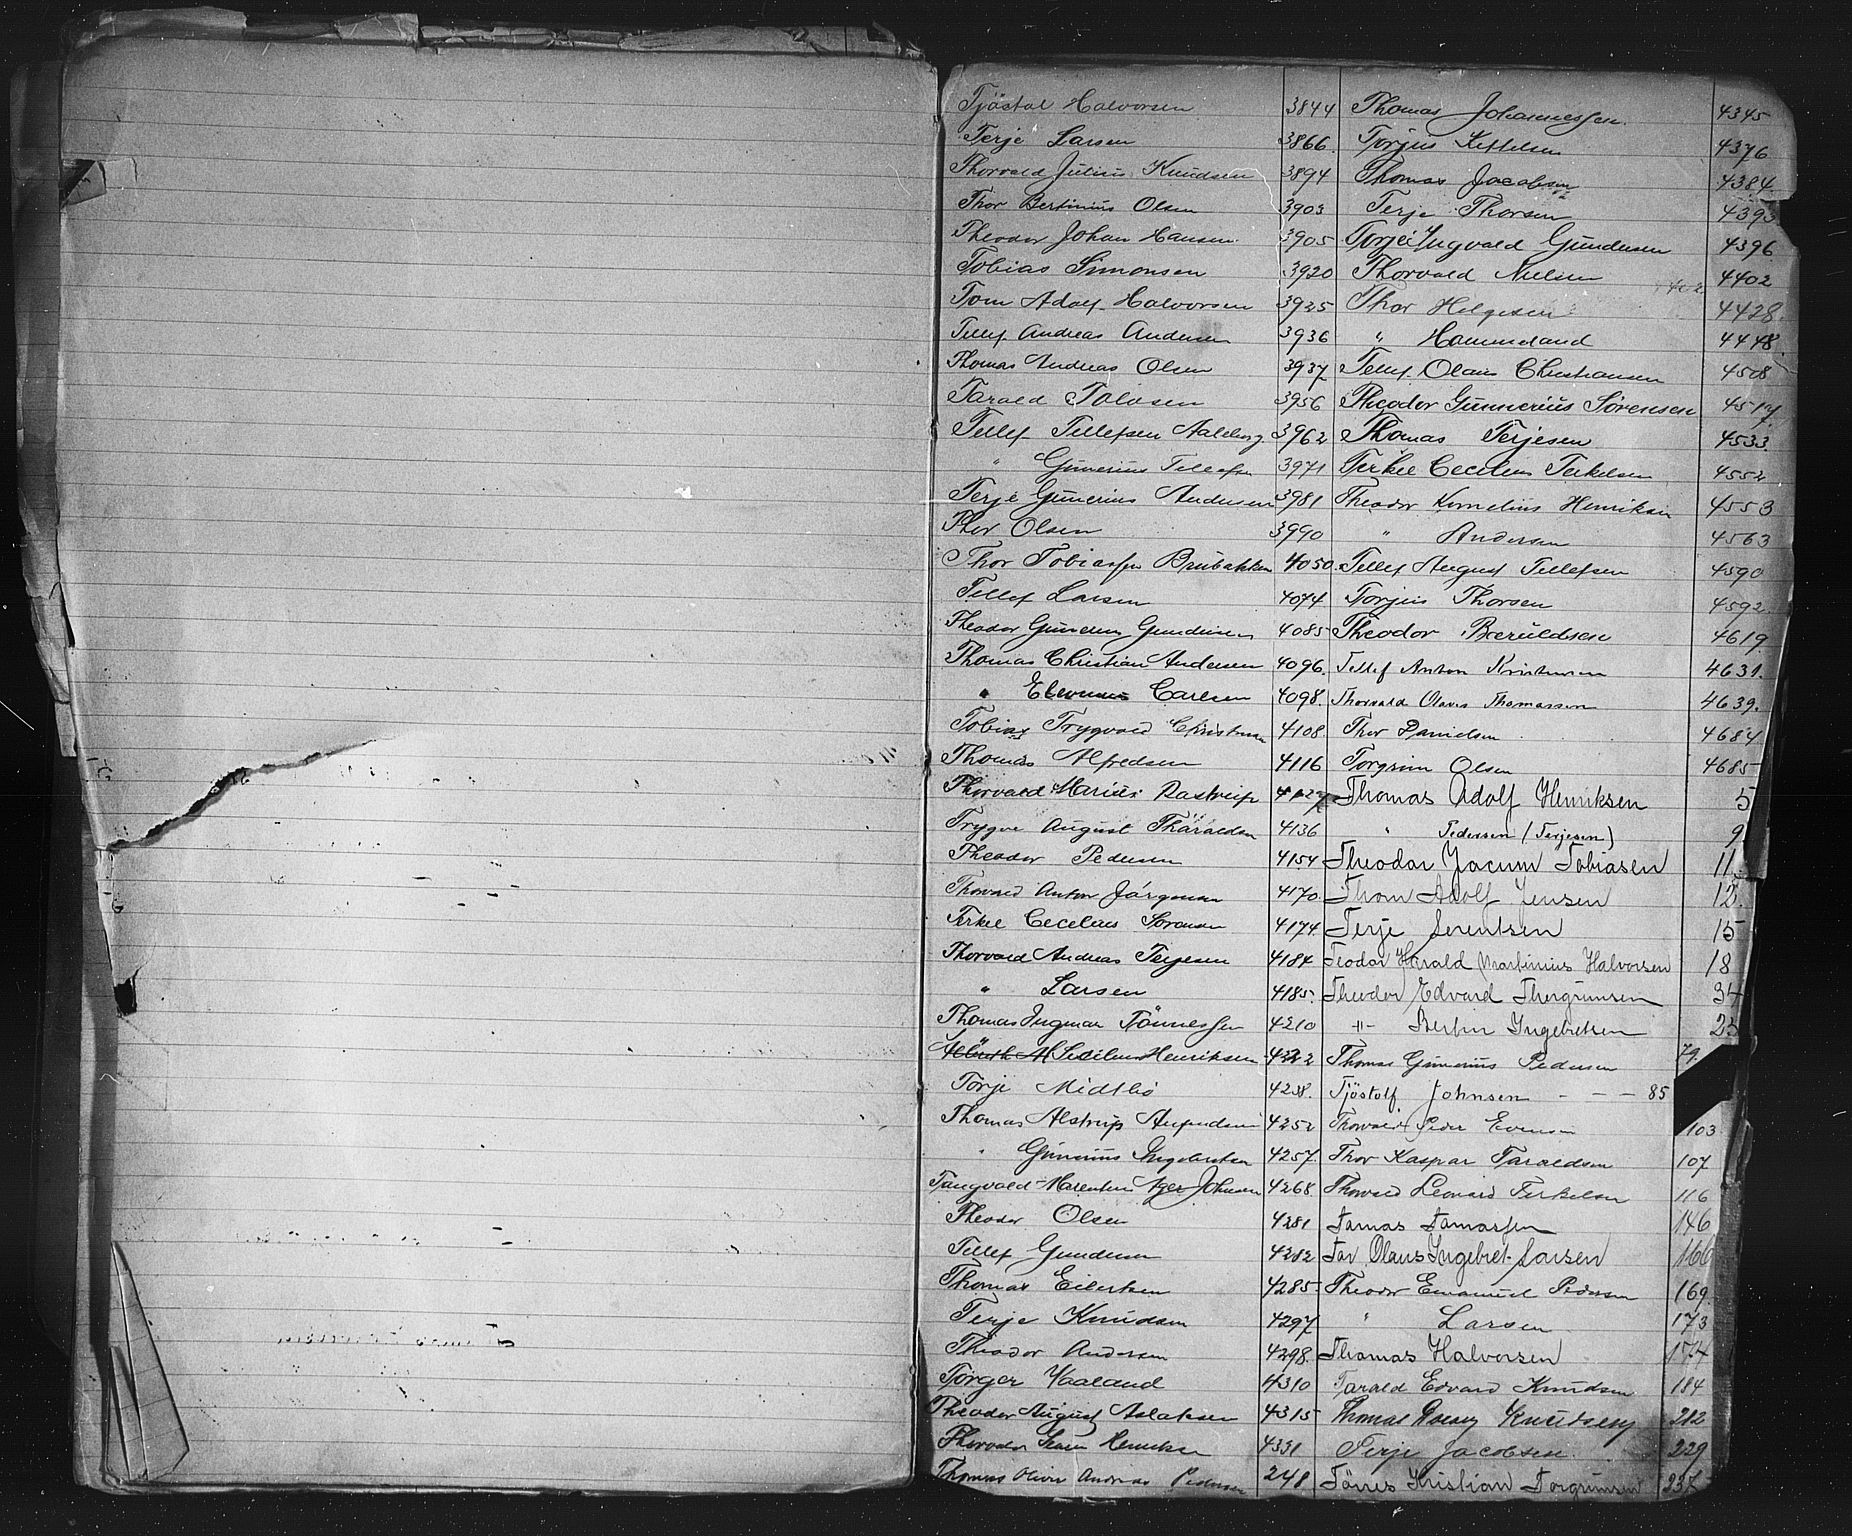 Tjöstal Halvorsen 3844
Terje Larsen 3866.
Thorvald Julius Knudsen 3894
Thor Bertinius Olsen 3903
Theodor Johan Hansen 3905
Tobias Simonsen 3920
Tom Adolf Halvorsen 3925
Tellef Andreas Andersen 3936
Thomas Andreas Olsen 3937
Tarald Tolvsen 3956
Tellef Tellefsen Aalborg 3962
" Gunerius Tellefsen 3971
Terje Gunerius Andersen 3981
Thor Olsen 3990
Thor Tobiassen Brubakken 4050.
Tellef Larsen 4074
Theodor Gundersen 4085
Thomas Christian Andersen 4096.
" Carlsen 4098.
Tobias Trygvald Christensen 4108
Thomas Alfredsen 4116
Thorvald Marius Rastrup 4127
Trygve August Tharaldsen 4136
Theodor Pedersen 4154
Thorvald Anton Jörgensen 4170
Terkel Cecelius Sörensen 4174
Thorvald Andreas Terjesen 4184
" Larsen 4185.
Thomas Ingmar Tönnessen 4210
Sedelius Henriksen 4222
Torje Midtbö 4238.
Thomas Alstrup 4252
" Gunerius Ingebretsen 4257.
Tangvald Johnsen 4268
Theodor Olsen 4281
Tellef Gundersen 4282
Thomas Eilertsen 4285.
Terje Knudsen 4297
Theodor Andersen 4298.
Törger Haaland 4310
Theodor August Aslaksen 4315
Henriksen 4331
Thomas Oliver Andreas Pedersen 248
Thomas Johannessen. 4345
Torjus Kittelsen 4376
Thomas Jacobsen 4384
Terje Thorsen 4393
Torjei Ingvald Gundersen 4396
Thorvald Nielsen 4402
Thor Helgesen 4428.
" Hammeland 4448.
Tellef Olaus Christiansen 4508
Theodor Gunnerius Sörensen 4517.
Thomas Terjesen 4533.
Terkel Cecelius Terkelsen 4552
Theodor Kornelius Henriksen 4553
" Andersen 4563
Tellef August Tellefsen 4590
Torjus Thorsen 4592.
Theodor Beruldsen 4619
Tellef Anton Kristensen 4631.
Thorvald Olaves Thomassen 4639.
Thor Danielsen 4684
Torgrim Olsen 4685
Thomas Adolf Henriksen 5
" Pedersen (Terjesen) 9
Theodor Jacum Tobiasen 11
Thom Adolf Jensen 12.
Terje Lorentsen 15
Teodor Harald Martinius Halvorsen 18
Theodor Edvard Thorgrimsen 34
-"- Bertin Ingebretsen 23
Thomas Gunerius Pedersen 79.
Tjöstolf Johnsen - - - 85
Thorvald Peder Evensen 103
Thor Kaspar Taraldsen 107
Thorvald Leonard Terkelsen 116
Tomas Tomassen 146
Tor Olaus Ingebret Larsen 160
Theodor Emanuel Pedersen 169.
" Larsen 173
Thomas Halvorsen 174
Tarald Edvard Knudsen 184
Thomas Knudsen 212
Terje Jacobsen. 229
Tönes Kristian Torgrimsen 237